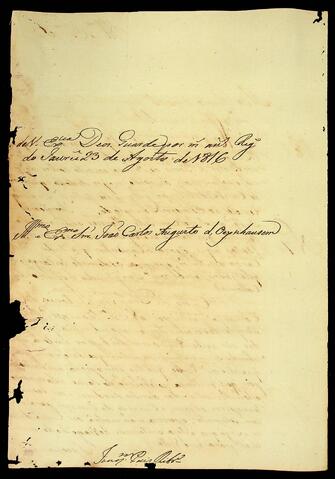 de V. Ex.cia Deos Guarde por m.s an.s Reg.o
do Jaurú 23 de Agosto de 1816
Ill.mo e Ex.mo Snr. João Carlos Augusto d'Oeynhausen